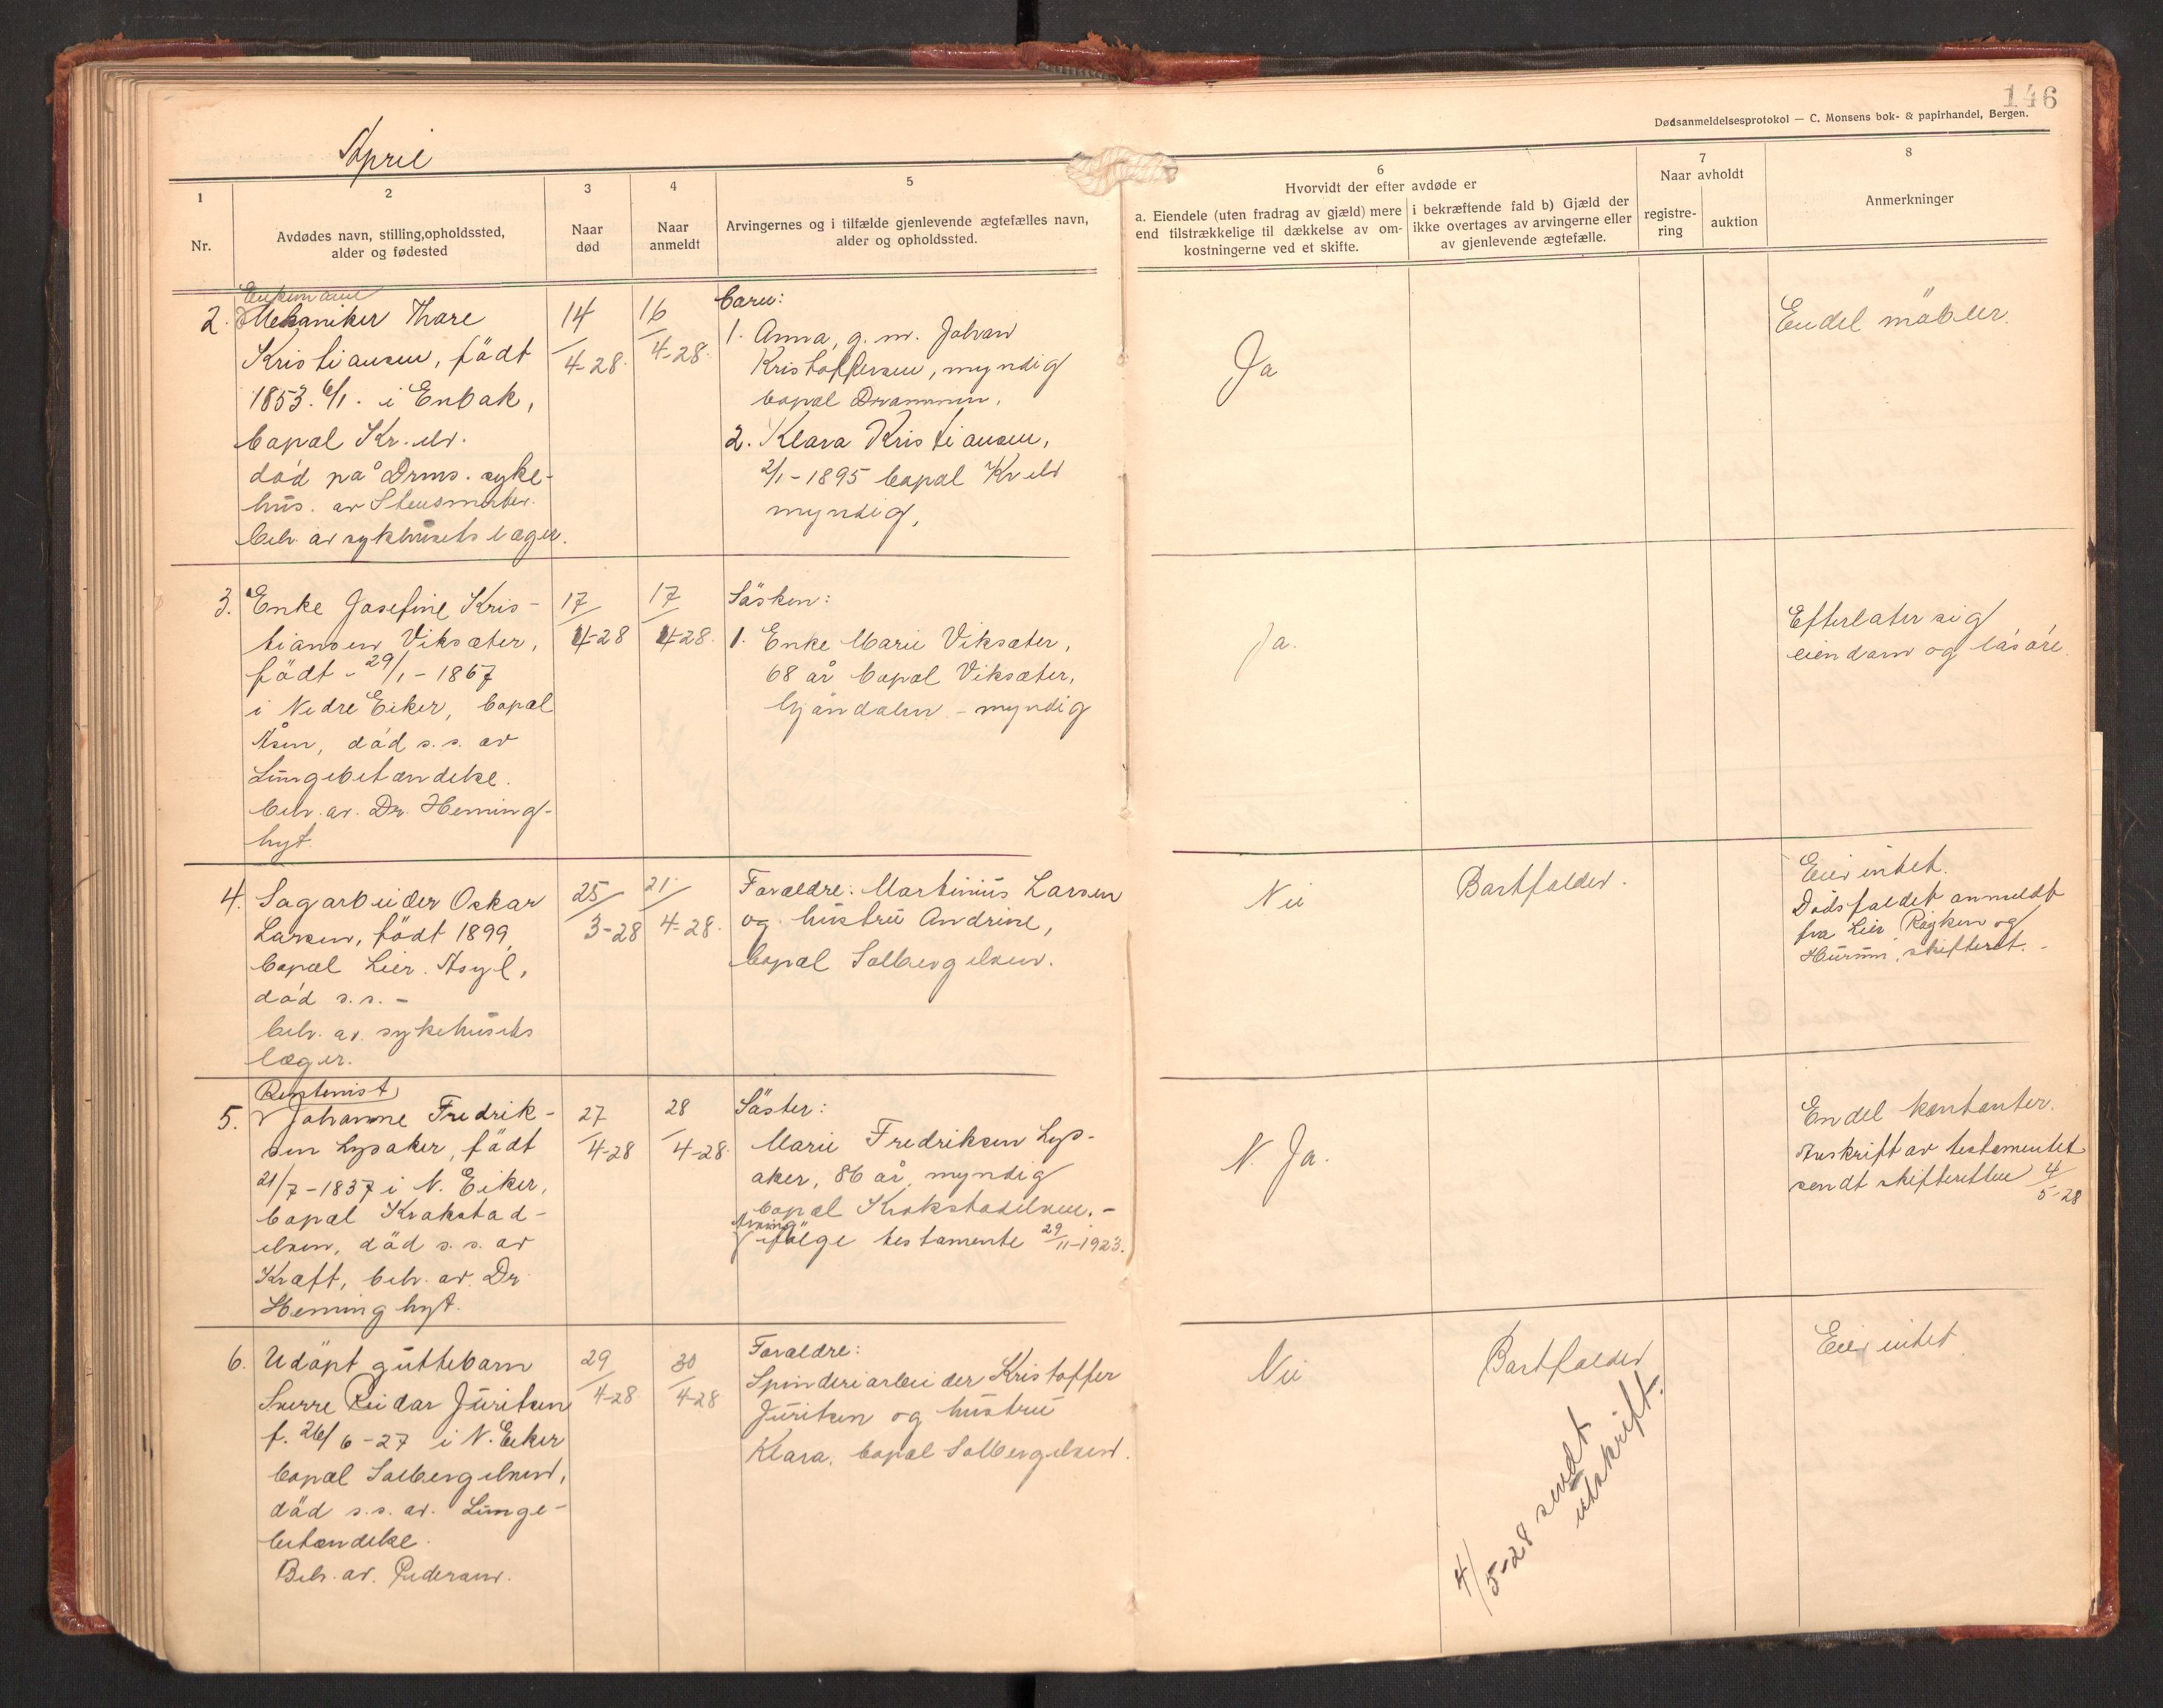 146
Dødsanmeldelsesprotokol — C. Monsens bok- & papirhandel, Bergen.
April
1
Nr.
2
Avdødes navn, stilling, opholdssted,
alder og fødested
3
Naar
død
4
Naar
anmeldt
5
Arvingernes og i tilfælde gjenlevende ægtefælles navn,
alder og opholdssted.
6
Hvorvidt der efter avdøde er
a. Eiendele (uten fradrag av gjæld) mere
end tilstrækkelige til dækkelse av om-
kostningerne ved et skifte.
i bekræftende fald b) Gjæld der
ikke overtages av arvingerne eller
av gjenlevende ægtefælle.
7
Naar avholdt
registre-
ring
auktion
8
Anmerkninger
Enkemand
2. Mekaniker Thore
Kristiansen, födt
1853. 6/1. i Enbak,
bopæl Kr.elv.
död på Drms. syke-
hus. av
beh. av sykhusets læger.
14/4-28.
16/4-28.
Barn:
1. Anna, g. m. Johan
Kristoffersen, myndig
bopæl Drammen.
2. Klara Kristiansen,
2/1-1895 bopæl Kr elv
myndig.
Ja
Endel möbler.
3. Enke Josefine Kris-
tiansen Viksæter,
födt - 29/1-1867
i Nedre Eiker, bopæl
Åsen, död s. s. av
Lungebetændelse.
beh. av. Dr. Heming-
hyt.
17/4-28
17/4-28.
Säsken:
1. Enke Marie Viksæter,
68 år bopæl Viksæter,
Mjöndalen - myndig
Ja.
Efterlater sig
eiendom og lösöre.
4. Sagarbeider Oskar
Larsen, födt 1899,
bopæl Lier. Asyl,
död s. s. -
beh. av. sykehusets
læger.
25/3-28
21/4-28.
Forældre: Martinius Larsen
og hustru Andrine,
bopæl Solbergelven.
Nei
Bortfalder.
Eier intet.
Dödsfaldet anmeldt
fra Lier, Röyken og
Hurum, skifteret. -
Rentenist
5. Johanne Fredrik-
sen Lysaker, födt
21/7-1837 i N. Eiker,
bopæl Krokstad-
elven, död s. s. av
Kræft, beh. av. Dr.
Heminghyt.
27/4-28
28/4-28.
Säster:
Marie Fredriksen Lys-
aker, 86 år, myndig
bopæl Krokstadelven. -
Arving
ifölge testamente 29/11-1923.
N. Ja.
Endel kontanter.
Avskrift av testamentet
sendt skifteretten 4/5-28
6. Udöpt guttebarn
Sverre Reidar Juritsen
f. 26/6-27 i N. Eiker
bopæl Solbergelven,
död s. s. av. Lunge-
betændelse.
Beh. av. Pedersen.
29/4-28
30/4-28
Forældre:
Spinderiarbeider Kristoffer
Juritsen og hustru
Klara, bopæl Solbergelven.
Nei
Bortfalder
Eier intet.
4/5-28 sendt
utskrift.